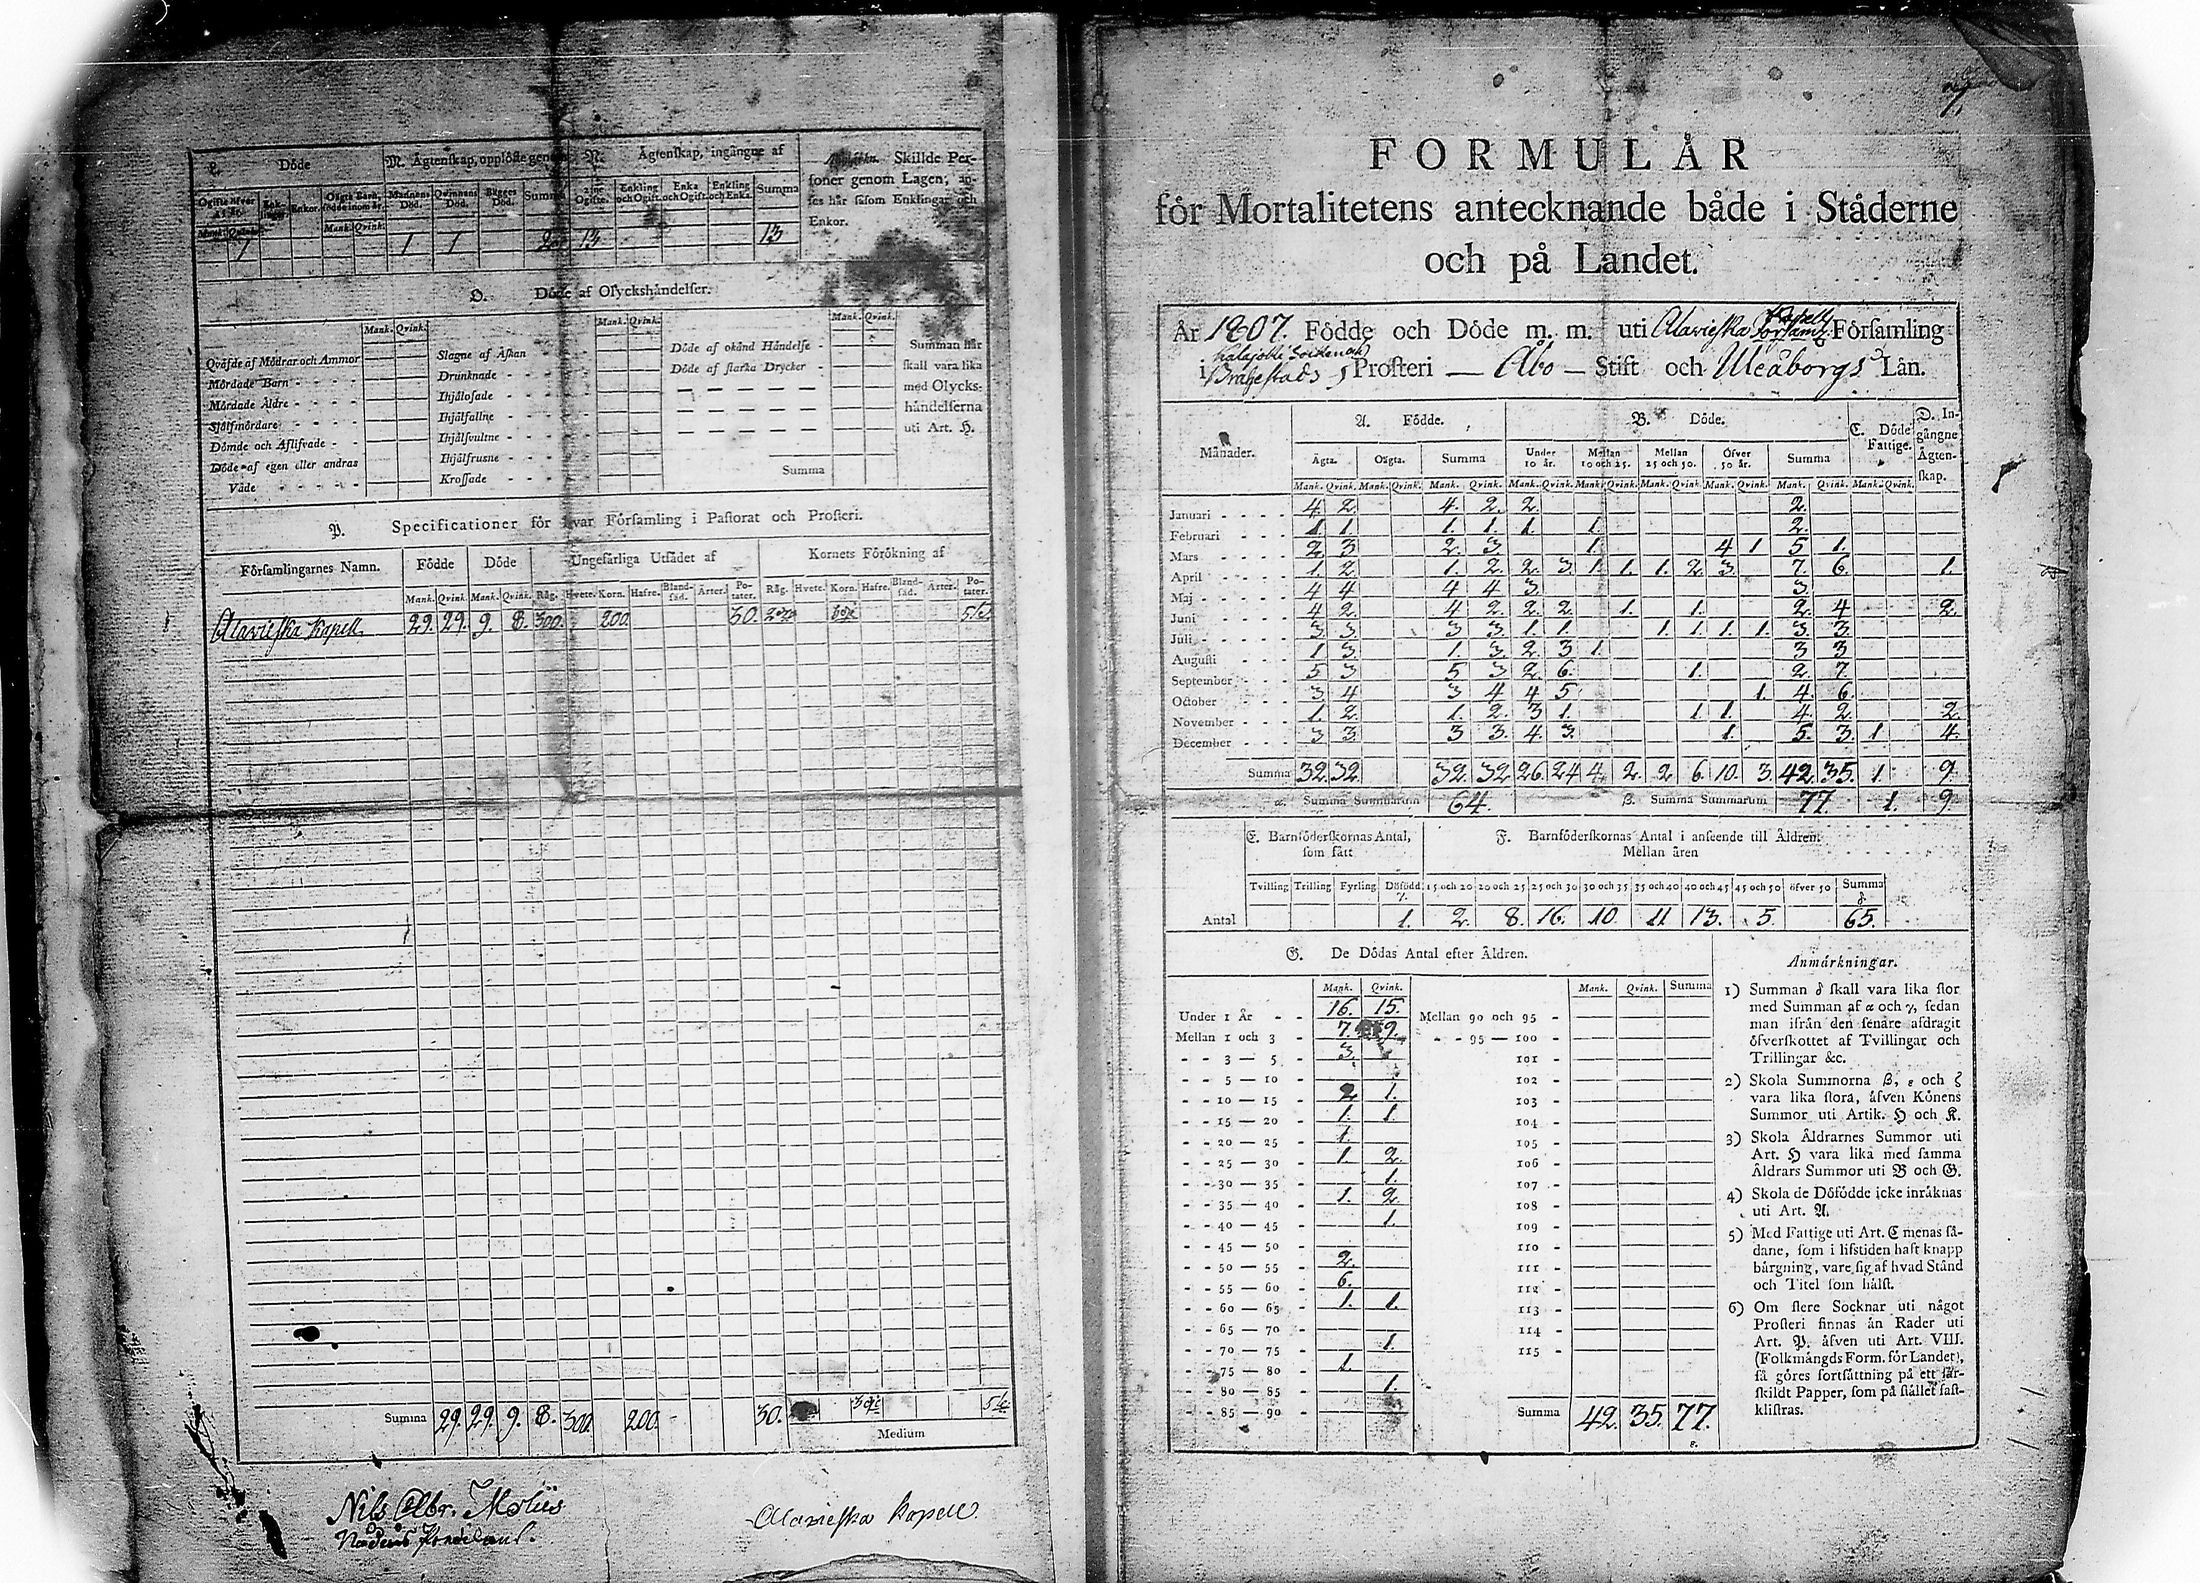 L. Döde M. Ägtenſkap, upplöſte genom N. Ägtenſkap, ingångne af Skillde Per-
ſoner genom Lagen, an-
ſes här ſåſom Enklingar och
Enkor.
Ogifte öfver 15 år. Enk-lingar. Enkor. Oägta Barn, födde inom år. Mannens Död. Qvinnans Död. Bägges Död. Summa 2:ne Ogifte. Enkling och Ogift. Enka och Ogift. Enkling och Enka. Summa
Mank. Qvink. Mank. Qvink.
1 1 1 2 13 13
O. Döde af Olyckshändelſer.
Mank. Qvink. Mank. Qvink. Mank. Qvink.
Qväfde af Mödrar och Ammor Slagne af Åſkan Döde af okänd Händelſe - Summan här
Mördade Barn - - - - Drunknade - - - - Döde af ſtarka Drycker - ſkall vara lika
Mördade Äldre - - - - Ihjälofade - - - - med Olycks-
Sjölfmördare - - - - Ihjälfallne - - - - händelſerna
Dömde och Aflifvade - - Ihjälſvultne - - - uti Art. H.
Döde af egen eller andras Ihjälfruſne - - - -
Våde - - - - - Kroſſade - - - - Summa
P. Specificationer för hvar Förſamling i Paſtorat och Proſteri.
Förſamlingarnes Namn. Födde Döde Ungefärliga Utſädet af Kornets Förökning af
Mank. Qvink. Mank. Qvink. Råg. Hvete. Korn. Hafre. Bland-ſäd. Ärter. Po-tater. Råg. Hvete. Korn. Hafre. Bland-ſäd. Ärter. Po-tater.
Alavieſka Kapell 29. 29. 9. 8. 300. 200. 30.
Summa 29. 29. 9. 8. 300. 200. 30.
Medium
Alavieſka Kapell
FORMULÅR
för Mortalitetens antecknande både i Städerne
och på Landet.
År 1807. Födde och Döde m. m. uti Alavieſka Kapell Förſamling
i Brahestads Proſteri — Åbo — Stift och Uleåborgs Län.
Månader. A. Födde. B. Döde. C. Döde Fattige. D. In-gångne Ägten-ſkap.
Ägta. Oägta. Summa Under 10 år. Mellan 10 och 25. Mellan 25 och 50. Öfver 50 år. Summa
Mank. Qvink. Mank. Qvink. Mank. Qvink. Mank. Qvink. Mank. Qvink. Mank. Qvink. Mank. Qvink. Mank. Qvink. Mank. Qvink.
Januari - - - 4. 2. 4. 2. 2. 2.
Februari - - - 1. 1. 1. 1. 1. 1. 2.
Mars - - - - 2 3 2. 3. 1. 4 1 5 1.
April - - - - 1. 2. 1. 2. 2. 3. 1. 1. 1. 2. 3. 7. 6. 1.
Maj - - - - 4 4 4 4 3. 3.
Juni - - - - 4 2. 4 2. 2 2. 1. 1. 2. 4 2.
Juli - - - - 3 3. 3 3. 1. 1. 1. 1. 1. 1. 3. 3.
Auguſti - - - 1 3. 1. 3. 2. 3 1. 3 3
September - - - 5 3 5 3 2. 6. 1. 2. 7.
October - - - 3 4 3 4 4 5 1. 4 6.
November - - - 1. 2. 1. 2. 3 1. 1 1. 4. 2. 2.
December - - - 3 3. 3 3. 4. 3. 1. 5. 3. 1 4.
Summa 32. 32. 32. 32 26. 24 4. 2. 2 6. 10. 3. 42. 35. 1. 9
α. Summa Summarum 64. β. Summa Summarum 77. 1. 9
E. Barnföderſkornas Antal, ſom fått F. Barnföderſkornas Antal i anſeende till Åldren:
Mellan åren
Tvilling Trilling Fyrling Dödfödd γ. 15 och 20 20 och 25 25 och 30 30 och 35 35 och 40 40 och 45 45 och 50 öfver 50 Summa δ
Antal 1. 2. 8. 16. 10. 11 13. 5. 65.
G. De Dödas Antal efter Åldren.
Mank. Qvink. Mank. Qvink. Summa
Under 1 År - - 16. 15. Mellan 90 och 95 -
Mellan 1 och 3 - 7. 9. - - 95 — 100 -
- - 3 — 5 - 3. 101 -
- - 5 — 10 - 102 -
- - 10 — 15 - 2 1. 103 -
- - 15 — 20 - 1. 1. 104 -
- - 20 — 25 - 1. 105 -
- - 25 — 30 - 1. 2. 106 -
- - 30 — 35 - 1. 107 -
- - 35 — 40 - 1. 2. 108 -
- - 40 — 45 - 1. 109 -
- - 45 — 50 - 110 -
- - 50 — 55 - 2. 111 -
- - 55 — 60 - 6. 112 -
- - 60 — 65 - 1. 1. 113 -
- - 65 — 70 - 114 -
- - 70 — 75 - 1. 115 -
- - 75 — 80 - 1.
- - 80 — 85 - 1.
- - 85 — 90 - Summa 42. 35. 77.
ε.
Anmärkningar.
1) Summan δ ſkall vara lika ſtor
med Summan af α och γ, ſedan
man ifrån den ſenare afdragit
öfverſkottet af Tvillingar och
Trillingar &c.
2) Skola Summorna β, ε och ζ
vara lika ſtora, äfven Könens
Summor uti Artik. H och K.
3) Skola Åldrarnes Summor uti
Art. H vara lika med ſamma
Åldrars Summor uti B och G.
4) Skola de Döfödde icke inräknas
uti Art. A.
5) Med Fattige uti Art. C menas ſå-
dane, ſom i lifstiden haft knapp
bärgning, vare ſig af hvad Stånd
och Titel ſom hälſt.
6) Om flere Socknar uti något
Proſteri finnas än Rader uti
Art. P. äfven uti Art. VIII.
(Folkmängds Form. för Landet),
få göres fortſättning på ett ſär-
ſkildt Papper, ſom på ſtället faſt-
kliſtras.
Nils Albr. Moliis